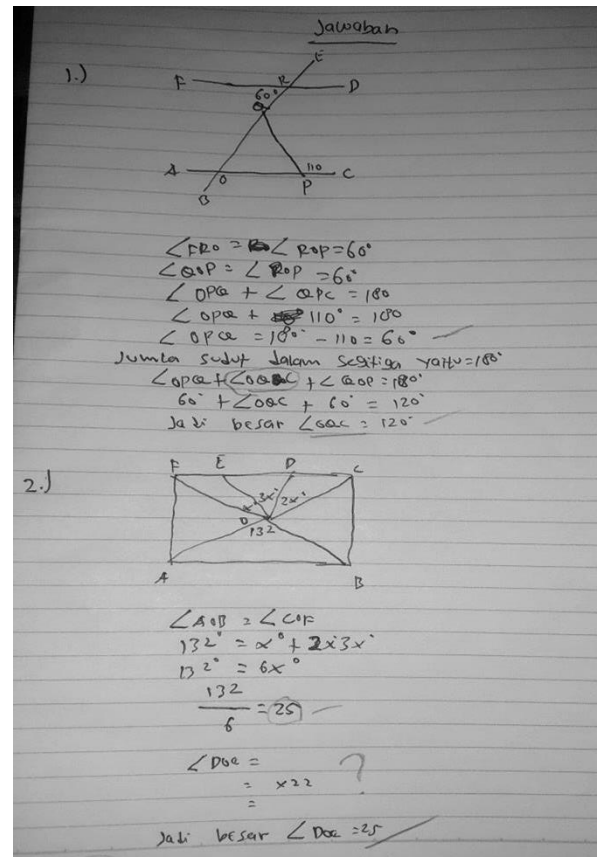 Jawaban
1.)
E
F R D
60°
Q
A O 110 C
P
B
∠FRO = ∠ROP = 60°
∠QOP = ∠ROP = 60°
∠OPQ + ∠QPC = 180
∠OPQ + 110° = 180
∠OPQ = 180° - 110 = 60°
Jumla sudut dalam segitiga yaitu = 180°
∠OPQ + + ∠QOP = 180°
60° + ∠OQC + 60° = 120°
Jadi besar ∠OQC = 120°
2.)
F E D C
x° 3x° 2x°
O
132
A B
∠AOB = ∠COF
132° = x° + 2x3x°
132° = 6x°
132
6
= 25
∠DOC =
= x22 ?
=
Jadi besar ∠DOC = 25